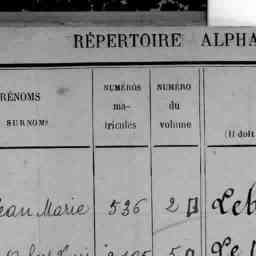 RÉPERTOIRE ALPHA
RÉNOMS
SURNOMS
NUMÉROS
ma-
tricules
NUMÉRO
du
volume
(Il doit
Jean Marie 536 2 Leb